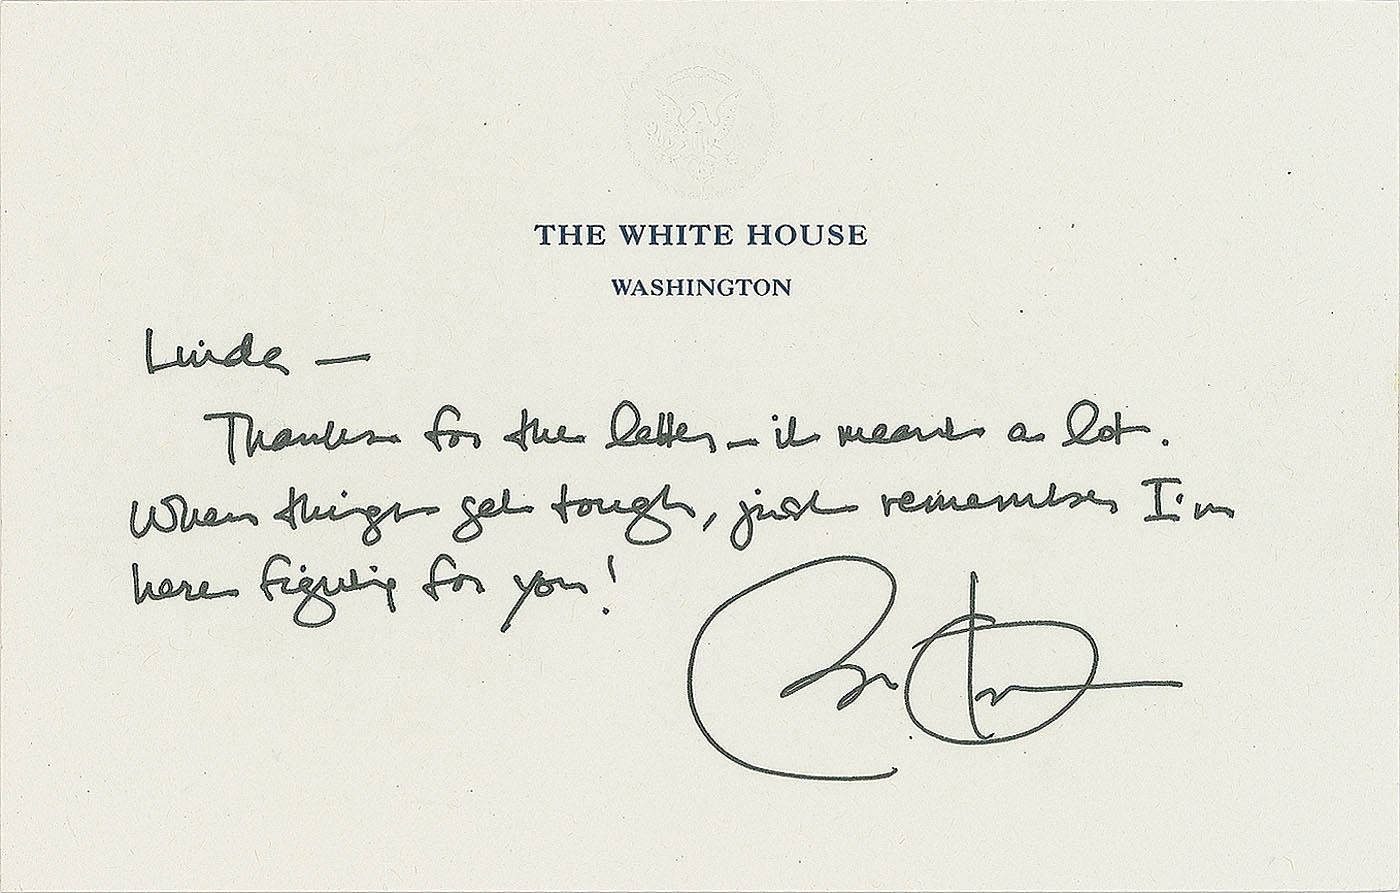 THE WHITE HOUSE
WASHINGTON
Linda —
Thanks for the letter – it meant a lot.
When things get tough, just remember I'm
here fighting for you!